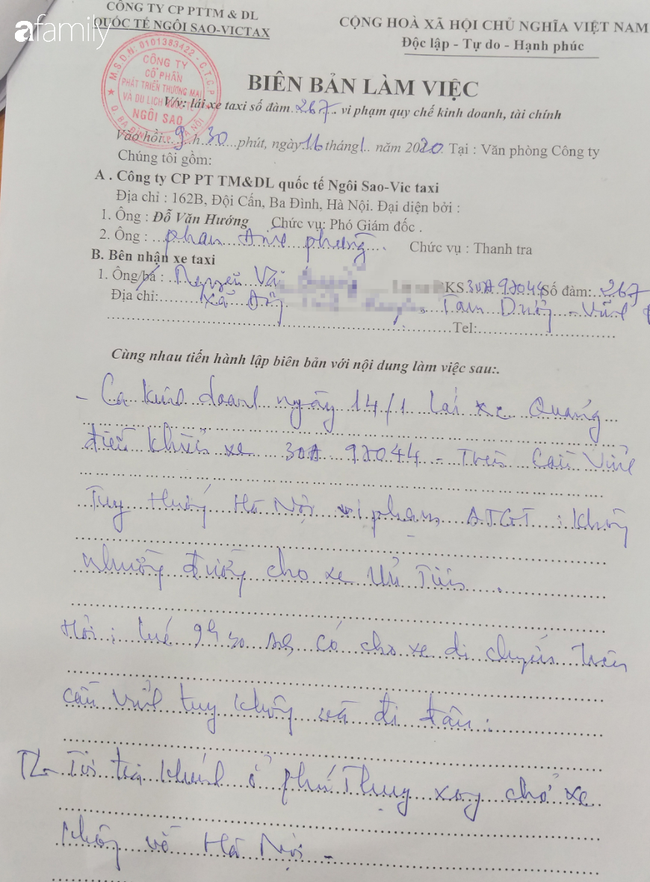 afamily
CÔNG TY CP PTTM & DL
QUỐC TẾ NGÔI SAO-VICTAX
CỘNG HOÀ XÃ HỘI CHỦ NGHĨA VIỆT NAM
Độc lập - Tự do - Hạnh phúc
M.S.D.N: 0101383422 - C.T.C.P
CÔNG TY
CỔ PHẦN
PHÁT TRIỂN THƯƠNG MẠI
VÀ DU LỊCH
NGÔI SAO
BIÊN BẢN LÀM VIỆC
V/v: lái xe taxi số đàm 267 vi phạm quy chế kinh doanh, tài chính
Vào hồi 9 h 30 phút, ngày 16 tháng 1 năm 2020 Tại : Văn phòng Công ty
Chúng tôi gồm:
A . Công ty CP PT TM&DL quốc tế Ngôi Sao-Vic taxi
Địa chỉ : 162B, Đội Cấn, Ba Đình, Hà Nội. Đại diện bởi :
1. Ông : Đỗ Văn Hướng Chức vụ: Phó Giám đốc .
2. Ông : phan phung Chức vụ : Thanh tra
B. Bên nhận xe taxi
1. Ông/bà : Nguyễn Vă KS 30A 97044 Số đàm: 267
Địa chỉ: xã Tam Dương - Vĩnh
Tel:
Cùng nhau tiến hành lập biên bản với nội dung làm việc sau:.
- Ca kinh doanh ngày 14/1 lái xe Quảng
điều khiển xe 30A 97044 - Trên Cầu Vĩnh
Tuy Hướng Hà Nội vi phạm ATGT : không
nhường đường cho xe ưu tiên .
Hỏi : lúc 9h30 có cho xe di chuyển trên
cầu Vĩnh tuy không và đi đâu :
TL - Tôi trả khách ở phố Thụy xong chở xe
không về Hà Nội -